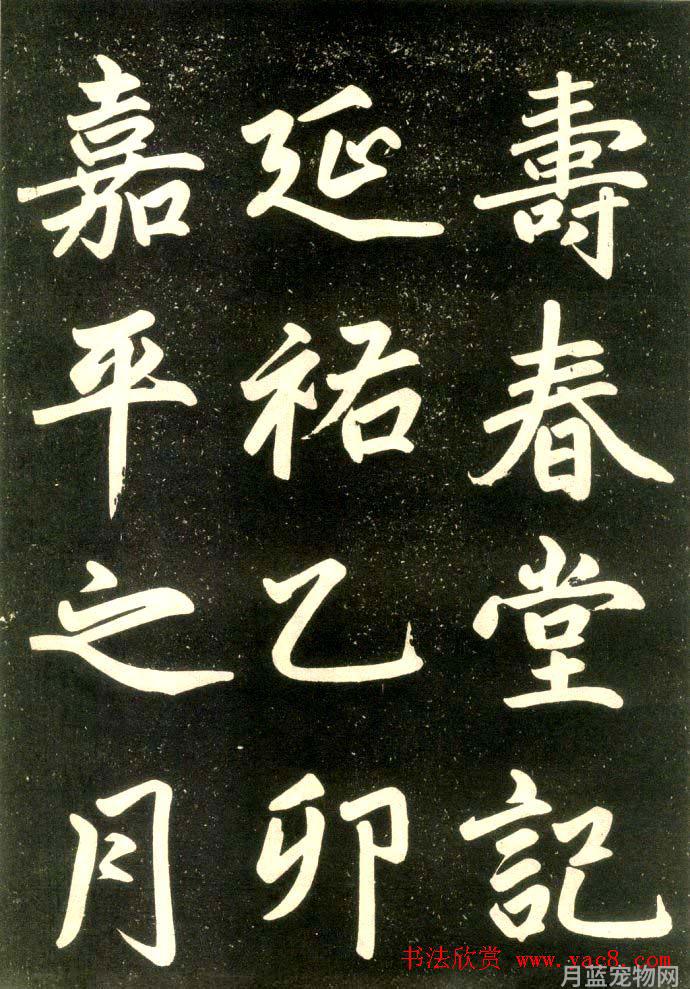 壽春堂記
延祐乙卯
嘉平之月
书法欣赏 www.yac8.com
月蓝宠物网